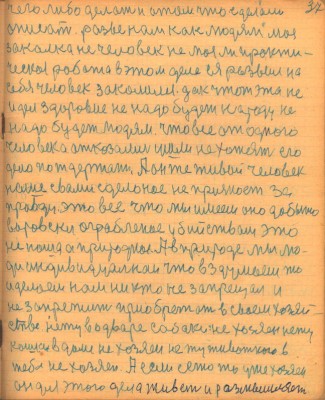 37
чего либо делать и о том что сделали
описат. разве нам как людям моя
закалка не человек не моя ли практи-
ческая работа в этом деле я развил на
себя человек закалил. дак что эта не
идея здоровие не надо будет народу не
надо будет людям. что все от одного
человека отказались не хотят его
дело поддержат. А он те живой человек
наше с вами сделаное не примоют за
правду. это все что мы имеем оно добыто
воровски ограбленое убийством это
не наша природная. А в природе мы лю-
ди индивидуально что вздумаем то
сделаем нам ни кто не запрещал и
не запретит приобретат в своем хозяй-
стве нету в одваре собаки не хозяен нету
кошки в доме не хозяен не ту животного в
тебя не хозяен. А если есть то уже хозяен
он для этого дела живет и размышляет